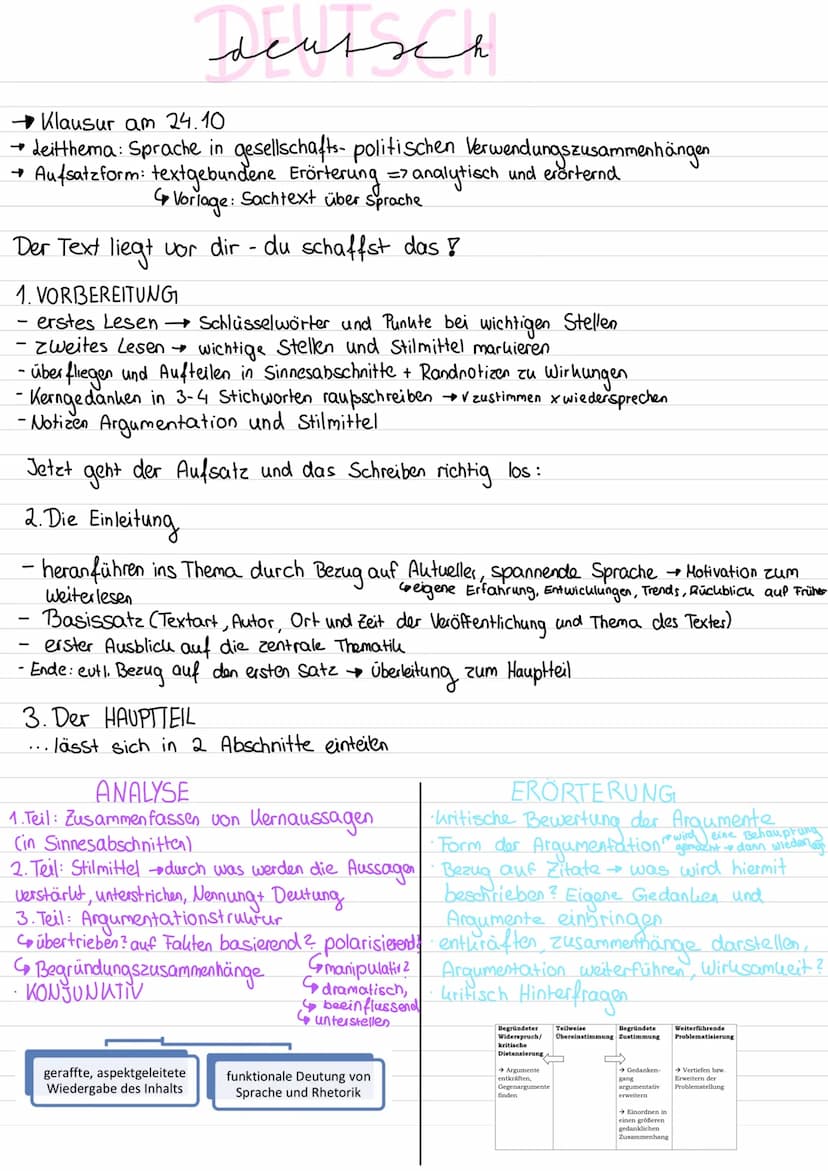 DEUTSCH
deutsch
→ Klausur am 24.10
→ Leitthema: Sprache in gesellschafts- politischen Verwendungszusammenhängen
→ Aufsatzform: textgebundene Erörterung => analytisch und erörternd
↳ Vorlage: Sachtext über Sprache
Der Text liegt vor dir - du schaffst das !
1. VORBEREITUNG
- erstes Lesen → Schlüsselwörter und Punkte bei wichtigen Stellen
- zweites Lesen → wichtige Stellen und Stilmittel markieren
- überfliegen und Aufteilen in Sinnesabschnitte + Randnotizen zu Wirkungen
- Kerngedanken in 3-4 Stichworten rausschreiben → ✓ zustimmen x wiedersprechen
- Notizen Argumentation und Stilmittel
Jetzt geht der Aufsatz und das Schreiben richtig los:
2. Die Einleitung
- heranführen ins Thema durch Bezug auf Aktuelles, spannende Sprache → Motivation zum
weiterlesen ↳ eigene Erfahrung, Entwicklungen, Trends, Rückblick auf Früher
- Basissatz (Textart, Autor, Ort und Zeit der Veröffentlichung und Thema des Textes)
- erster Ausblick auf die zentrale Thematik
- Ende: evtl. Bezug auf den ersten Satz → Überleitung zum Hauptteil
3. Der HAUPTTEIL
... lässt sich in 2 Abschnitte einteilen
ANALYSE
1. Teil: Zusammenfassen von Kernaussagen
(in Sinnesabschnitten)
2. Teil: Stilmittel → durch was werden die Aussagen
verstärkt, unterstrichen, Nennung + Deutung
3. Teil: Argumentationstruktur
↳ übertrieben? auf Fakten basierend? polarisierend?
↳ Begründungszusammenhänge ↳ manipulativ?
· KONJUNKTIV ↳ dramatisch,
↳ beeinflussend
↳ unterstellen
geraffte, aspektgeleitete
Wiedergabe des Inhalts
funktionale Deutung von
Sprache und Rhetorik
ERÖRTERUNG
· kritische Bewertung der Argumente
· Form der Argumentation → wird eine Behauptung
gemacht → dann
· Bezug auf Zitate → was wird hiermit
beschrieben? Eigene Gedanken und
Argumente einbringen
· entkräften, zusammenhänge darstellen,
Argumentation weiterführen, Wirksamkeit?
· kritisch Hinterfragen
Begründeter
Widerspruch/
kritische
Distanzierung
→ Argumente
entkräften,
Gegenargumente
finden
Teilweise
Übereinstimmung
Begründete
Zustimmung
→ Gedanken-
gang
argumentativ
erweitern
→ Einordnen in
einen größeren
gedanklichen
Zusammenhang
Weiterführende
Problematisierung
→ Vertiefen bzw.
Erweitern der
Problemstellung